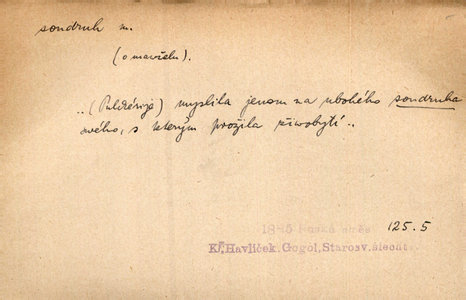 soudruh m.
(o manželu).
„(Pulchérije) myslila jenom na ubohého soudruha
svého, s kterým prožila živobytí „
1845 Ruská směs
125.5
K. Havlíček, Gogol, Starosv. šlecht.